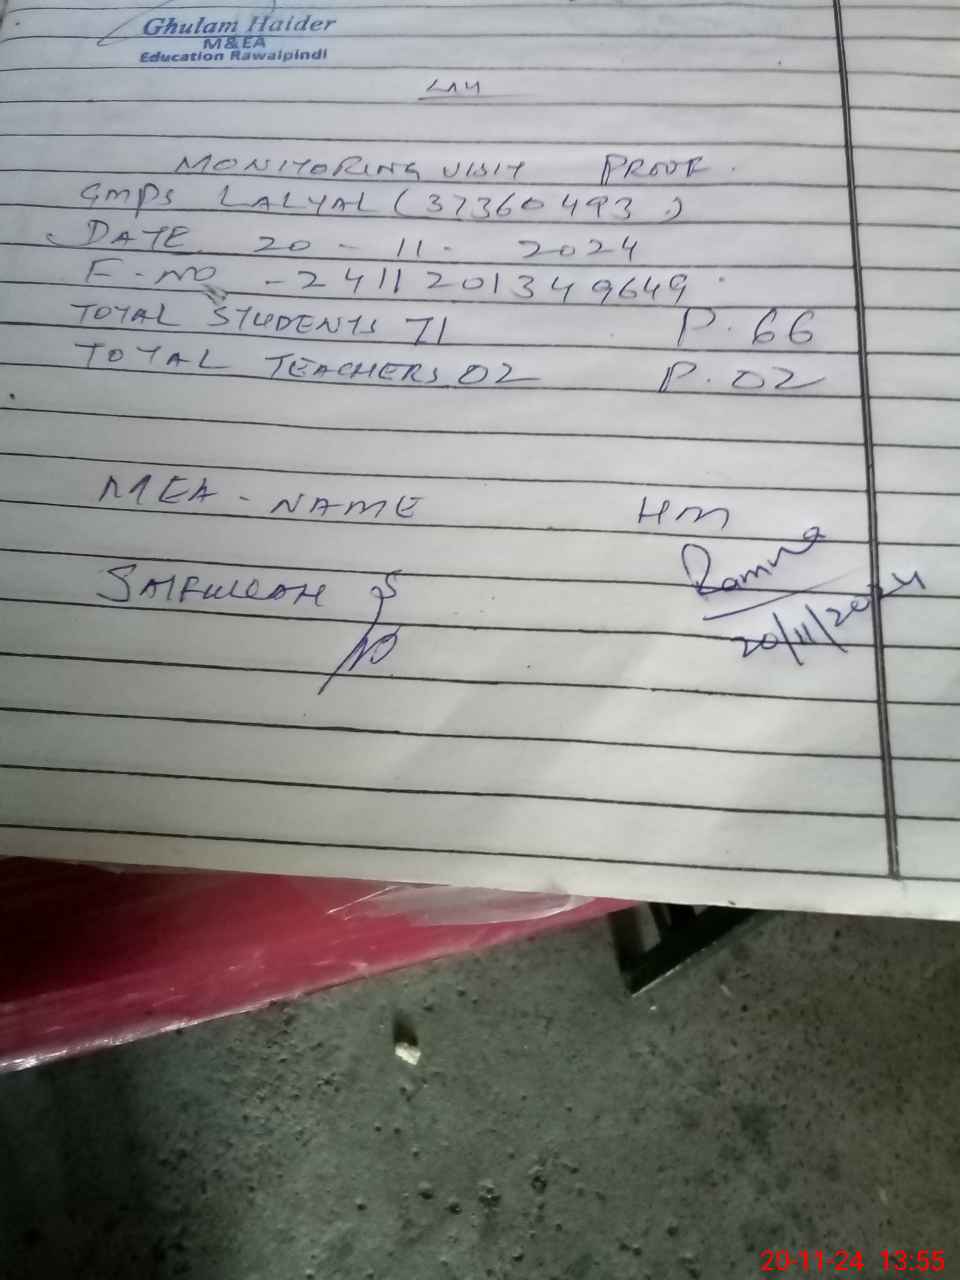 Ghulam Haider
M&EA
Education Rawalpindi
MONITORING VISIT PROOF.
GMPS LALYAL (37360493)
DATE 20-11-2024
F-NO -2411201349649
TOTAL STUDENTS 71 P.66
TOTAL TEACHERS 02 P.02
MEA-NAME HM
SAIFULLAH
20/11/2024
20-11-24 13:55